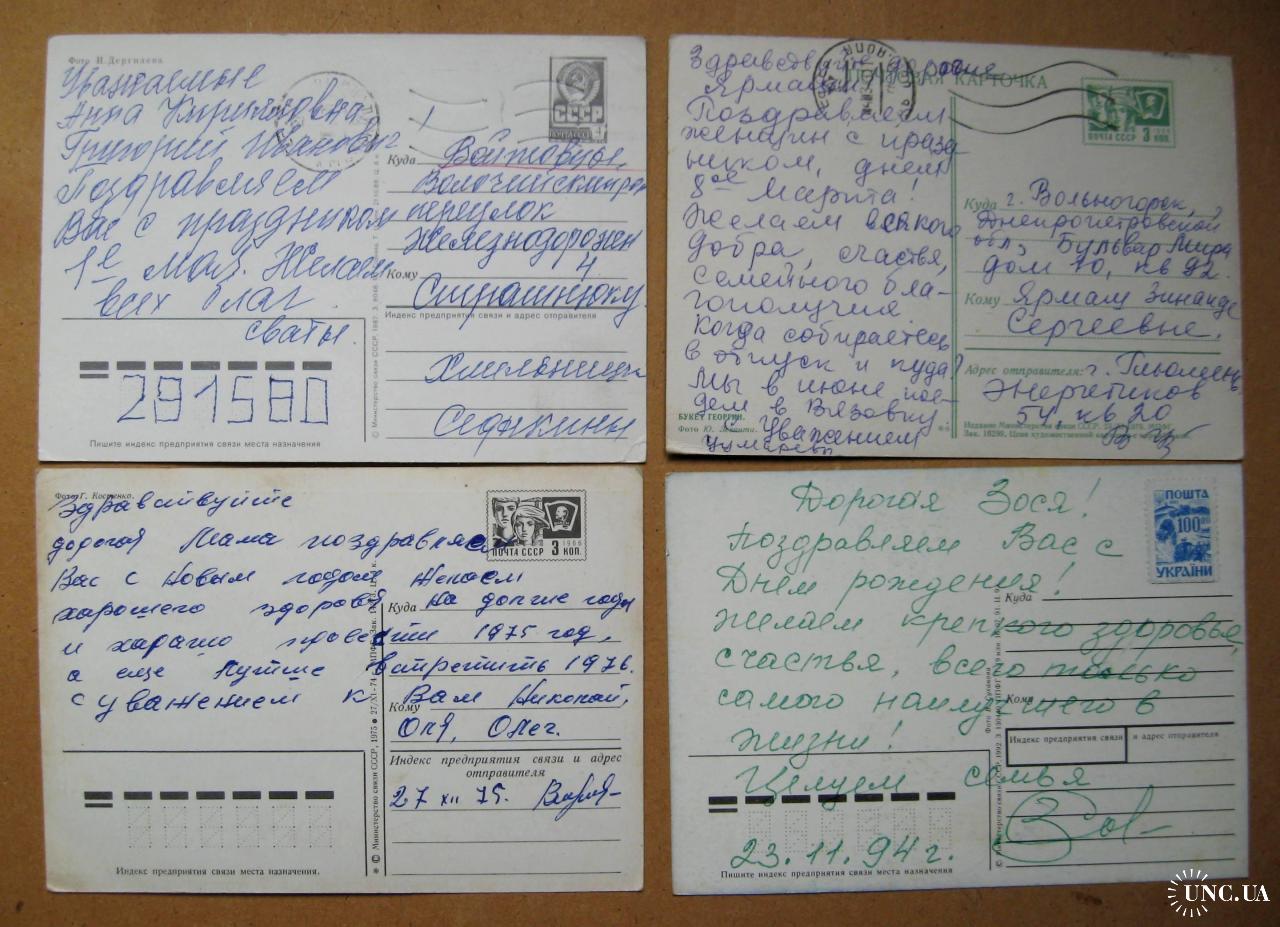 Фото И. Дергилева
Уважаемые
Анна
Григорий Иванович
Поздравляем
Вас с праздником
1е Мая. Желаем
всех благ
сваты.
СССР
ПОЧТА СССР
Куда Войтовцы,
переулок
Железнодорожн
4
Кому
Страшнюку
Индекс предприятия связи и адрес отправителя
291580
Пишите индекс предприятия связи места назначения
ПОЧТОВАЯ КАРТОЧКА
ПОЧТА СССР 3 КОП.
Здравствуйте дорогие
Поздравляем
женщин с празд
ником, днем
8ое Марта!
Желаем всякого
добра, счастья,
семейного бла-
гополучия
Когда собираетесь
в отпуск и куда?
Мы в июне пое-
дем в Вязовку
С Уважением
БУКЕТ ГЕОРГИН.
Куда г. Вольногорск,
Днепропетровской
обл, Бульвар Мира
дом 10, кв 92.
Кому Ярмам Зинаиде
Сергеевне.
Адрес отправителя: г.
Энергетиков
54 кв 20
Фото Г. Костенко.
Здравствуйте
дорогая Мама поздравляем
Вас с Новым годом желаем
хорошего здоровя на долгие годы
и харашо провести 1975 год,
а еще лутше встретить 1976.
с уважением к Вам Николай,
Оля, Олег.
1966
ПОЧТА СССР 3 КОП.
Куда
Кому
Индекс предприятия связи и адрес
отправителя
27 XII 75.
© Министерство связи СССР, 1975 • 27/XI-74 г.
Индекс предприятия связи места назначения.
Дорогая Зося!
Поздравляем Вас с
Днем рождения!
Желаем крепкого здоровья,
счастья, всего только
самого наилучшего в
жизни!
Целуем семья
23.11.94 г.
ПОШТА
100.00
УКРАЇНИ
Куда
Кому
Индекс предприятия связи и адрес отправителя
Пишите индекс предприятия связи места назначения
UNC.UA